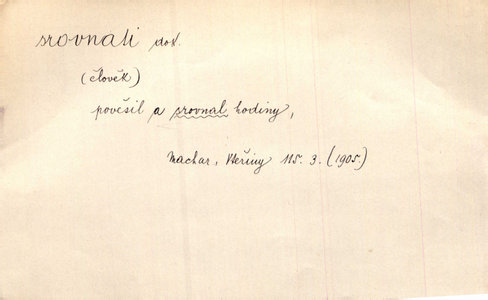 srovnati dok.
(člověk)
pověsil a srovnal hodiny,
Machar, Vteřiny 115. 3. (1905.)